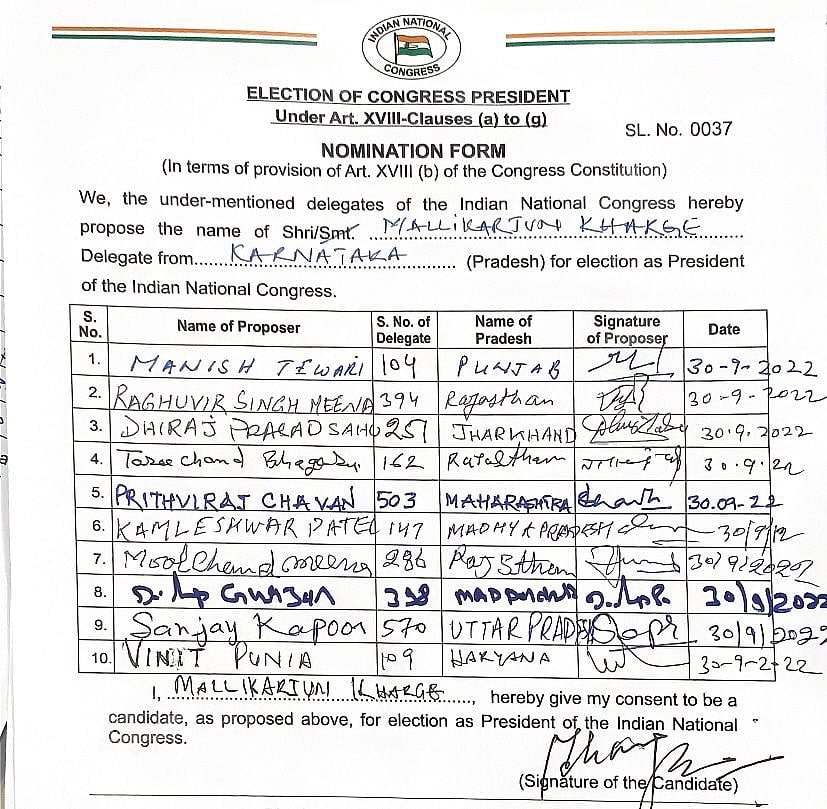 INDIAN NATIONAL
CONGRESS
ELECTION OF CONGRESS PRESIDENT
Under Art. XVIII-Clauses (a) to (g)
SL. No. 0037
NOMINATION FORM
(In terms of provision of Art. XVIII (b) of the Congress Constitution)
We, the under-mentioned delegates of the Indian National Congress hereby
propose the name of Shri/Smt. MALLIKARJUN KHARGE
Delegate from KARNATAKA (Pradesh) for election as President
of the Indian National Congress.
S. No. Name of Proposer S. No. of Delegate Name of Pradesh Signature of Proposer Date
1. MANISH TEWARI 104 PUNJAB 30-9-2022
2. RAGHUVIR SINGH MEENA 394 Rajasthan 30-9-2022
3. DHIRAJ PRASAD SAHU 251 JHARKHAND 30.9.2022
4. Tara Chand 162 Rajasthan 30.9.22
5. PRITHVIRAJ CHAVAN 503 MAHARASHTRA 30.09-22
6. KAMLESHWAR PATEL 147 MADHYA PRADESH 30/9/12
7. Moolchand meena 286 Rajsthan 30/9/2022
8. 30/9/2022
9. Sanjay Kapoor 570 UTTAR PRADESH 30/9/2022
10. VINIT PUNIA 109 HARYANA 30-9-2022
I, MALLIKARJUN KHARGE, hereby give my consent to be a
candidate, as proposed above, for election as President of the Indian National
Congress.
(Signature of the Candidate)